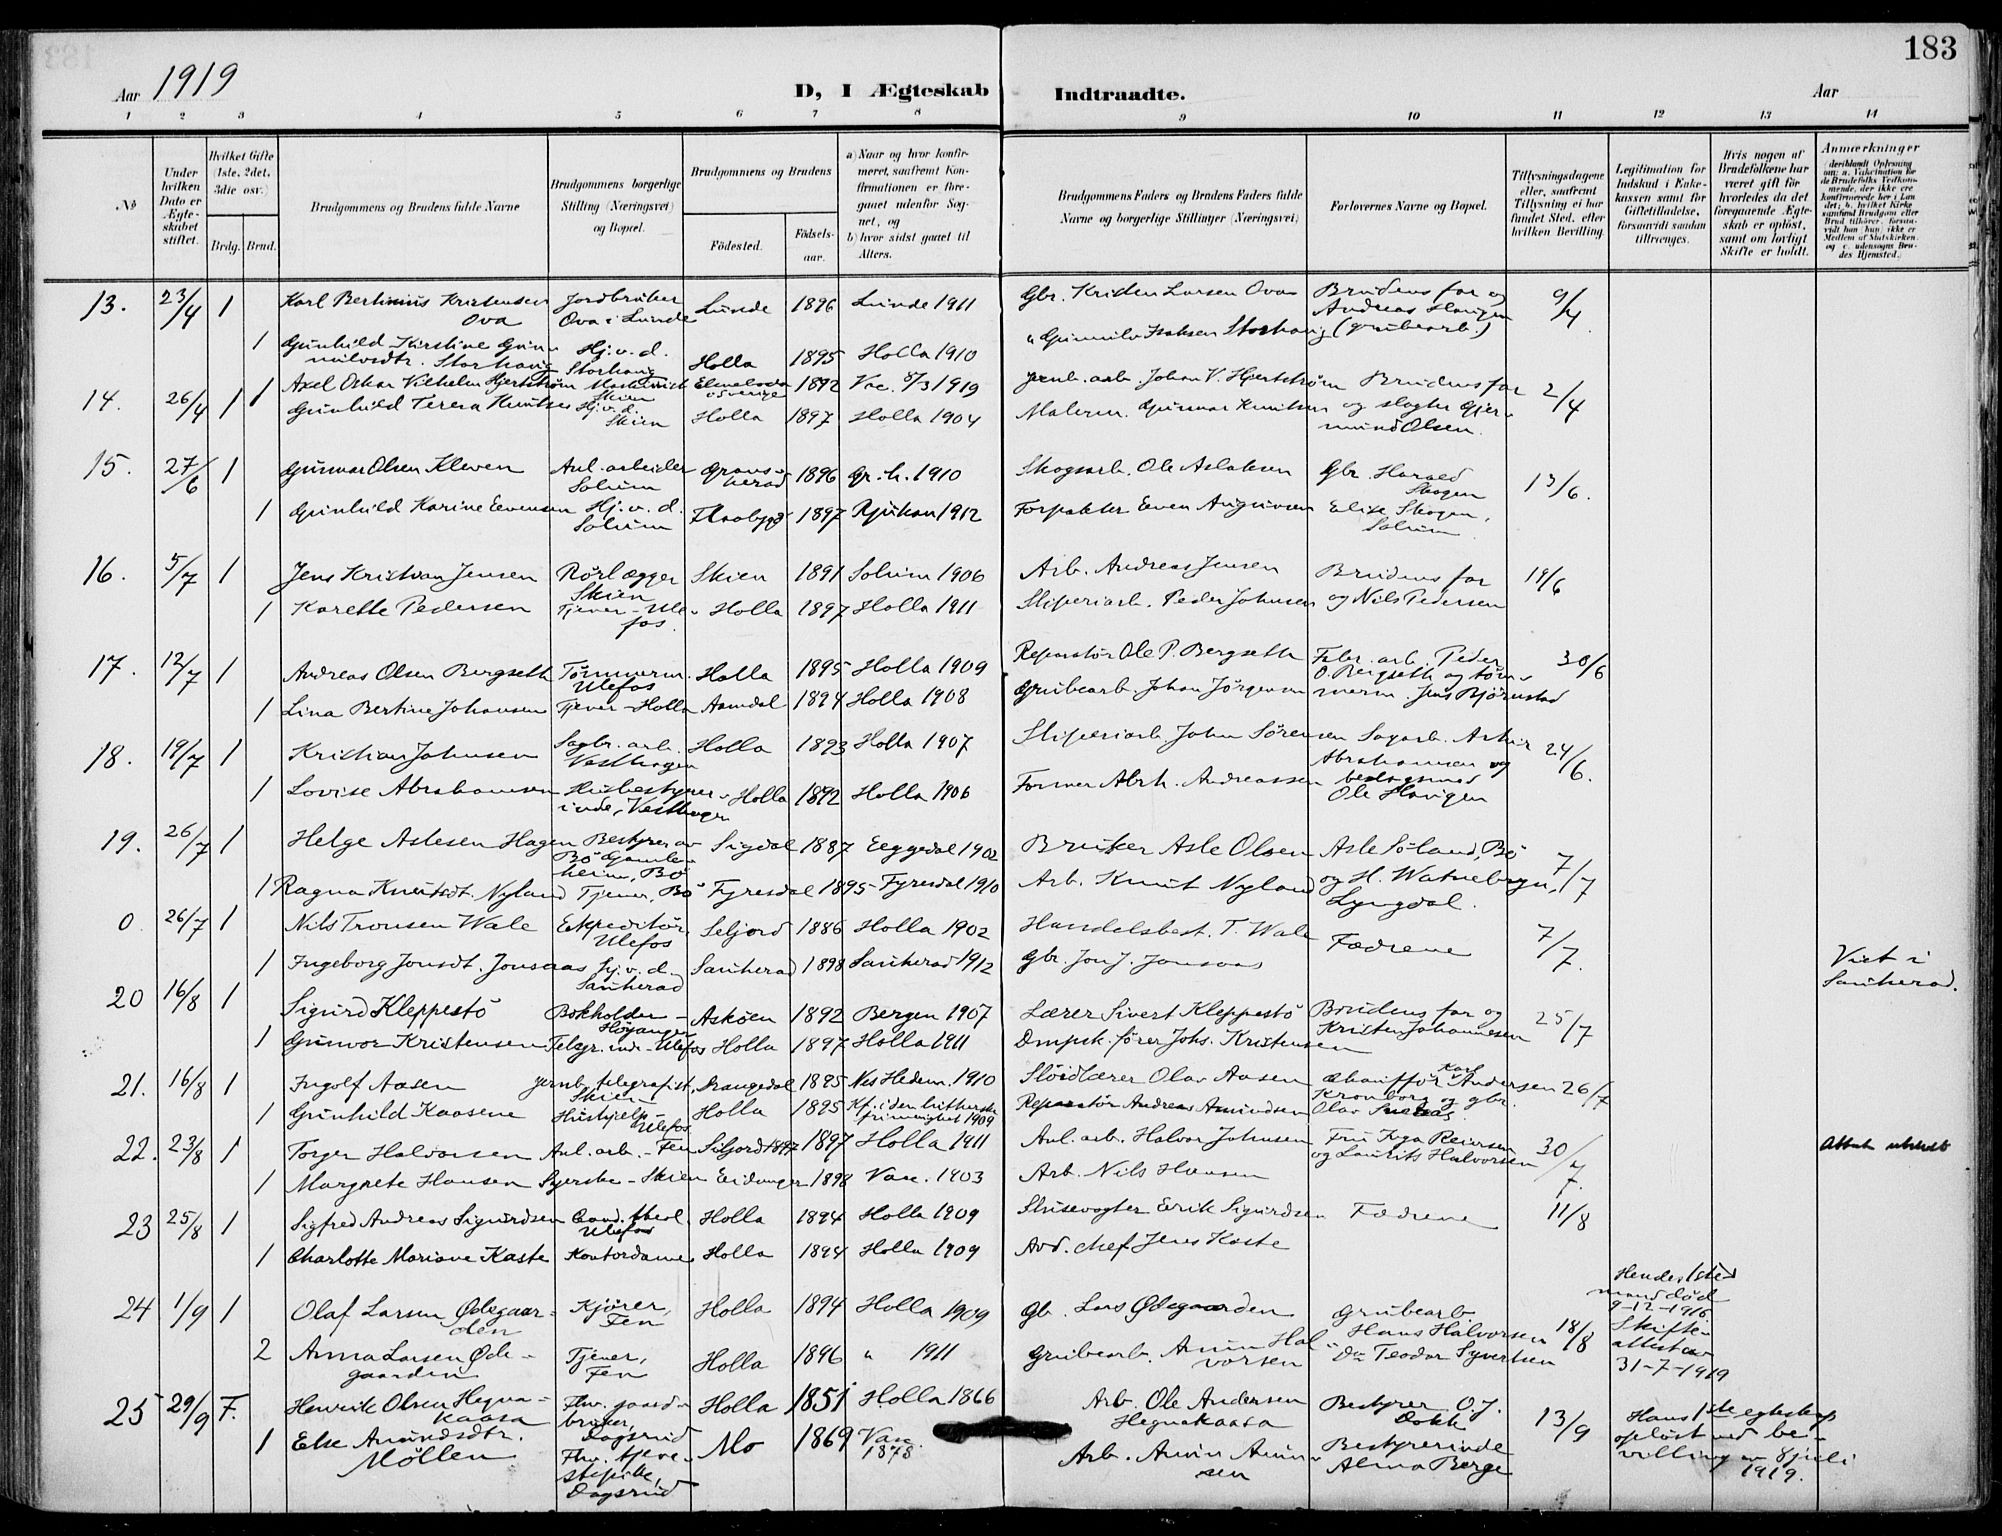 183
Aar 1919
D, I Ægteskab Indtraadte.
Aar
1 2 3 4 5 6 7 8 9 10 11 12 13 14
No
Under hvilken Dato er Ægteskabet stiftet.
Hvilket Gifte (1ste, 2det, 3die osv.)
Brdg. Brud.
Brudgommens og Brudens fulde Navne
Brudgommens borgerlige Stilling (Næringsvei) og Bopæl.
Brudgommens og Brudens
Födested.
Födselsaar.
a) Naar og hvor konfirmeret, saafremt Konfirmationen er foregaaet udenfor Sognet, og
b) hvor sidst gaaet til Alters.
Brudgommens Faders og Brudens Faders fulde Navne og borgerlige Stillinger (Næringsvei)
Forlovernes Navne og Bopæl.
Tillysningsdagene eller, saafremt Tillysning ei har fundet Sted, efter hvilken Bevilling.
Legitimation for Indskud i Enkekassen samt for Giftetilladelse, forsaavidt saadan tiltrænges.
Hvis nogen af Brudefolkene har været gift för hvorledes da det foregaaende Ægteskab er oplöst, samt om lovligt Skifte er holdt.
Anmærkninger
13. 23/4 1 Karl Bertinius Kristensen Ova Jordbruker Ova i Lunde Lunde 1896 Lunde 1911 Gbr. Kristen Larsen Ova Brudens far og Andreas Haugen (grubearb.) 9/4
1 Gunhild Kirstine Gunnulvsdtr. Storhaug Hj.v.d. Storhaug Holla 1895 Holla 1910 " Gunnulv Isaksen Storhaug
14. 26/4 1 1 Axel Oskar Vilhelm Hjertström Maskinist Skien 1892 Vac. 8/3 1919 Jernb. arb. Johan V. Hjertström Brudens far 2/4
Gunhild Terera Knutsen Hj.v.d. Skien Holla 1897 Holla 1904 Malerm. Gunnar Knutsen og slagter Gjermund Olsen.
15. 27/6 1 Gunnar Olsen Kleven Anl. arbeider Solum Gransherad 1896 Gr.h. 1910 Skogsarb. Ole Aslaksen Gbr. Harald Skogen 13/6.
1 Gunhild Karine Evensen Hj.v.d. Solum Flaabygd 1897 Rjukan 1912 Forpakter Even Elise Skogen, Solum
16. 5/7 1 Jens Kristian Jensen Rörlægger Skien Skien 1891 Solum 1906 Arb. Andreas Jensen Brudens far 19/6
1 Karette Pedersen Tjener - Ulefos. Holla 1897 Holla 1911 Sliperiarb. Peder Johnsen og Nils Pedersen
17. 12/7 1 Andreas Olsen Bergseth Tömmerm. Ulefos Holla 1895 Holla 1909 Reparatör Ole P. Bergseth Fabr. arb. Peder O. Bergseth og töm- 30/6
1 Lina Bertine Johansen Tjener - Holla Aamdal 1894 Holla 1908 Grubearb. Johan Jörgensen merm. Jens Björnstad
18. 19/7 1 Kristian Johnsen Sagbr. arb. Vesthagen Holla 1893 Holla 1907 Sliperiarb. John Sörensen Sagarb. Abrahamsen og 24/6.
1 Lovise Abrahamsen Husbestyrerinde, Vesthagen Holla 1892 Holla 1906 Former Abrh. Andreassen Ole Haugen
19. 26/7 1 Helge Aslesen Hagen Bestyrer av Bö Gamleheim, Bö Sigdal 1887 Eeggedal 1902 Bruker Asle Olsen Asle Söland, Bö 7/7
1 Ragna Knutsdt. Nyland Tjener, Bö Fyresdal 1895 Fyresdal 1910 Arb. Knut Nyland og H. Watnebryn, Lyngdal.
0 26/7 1 Nils Tronsen Wale Expeditör Ulefos Seljord 1886 Holla 1902 Handelsbest. T. Wale Fædrene 7/7.
1 Ingeborg Jonsdt. Jonsaas Hj.v.d. Sauherad Sauherad 1898 Sauherad 1912 Gbr. Jon J. Jonsaas Viet i Sauherad.
20 16/8 1 Sigurd Kleppestö Bokholder - Höyanger Asköen 1892 Bergen 1907 Lærer Sivert Kleppestö Brudens far og Kristen Johannesen 25/7
1 Gunvor Kristensen Telegr. inde - Ulefos Holla 1897 Holla 1911 Dmpsk. förer Johs. Kristensen
21. 16/8 1 Ingolf Aasen Jernb. telegrafist, Skien Drangedal 1895 Nes Hedem. 1910 Slöidlærer Olav Aasen Chafför Karl Andersen Kronborg og gbr. Olav 26/7
1 Gunhild Kaasene Hushjelp - Ulefos Holla 1895 Kf. i den lutherske frimenighet 1909 Reparatör Andreas Amundsen
22. 23/8 1 Torger Halvorsen Anl. arb. - Fen Siljord 1897 1897 Holla 1911 Anl. arb. Halvor Johnsen Fru Inga Reiersen og Laurits Halvorsen 30/7. Attest utstedt
1 Margrete Hansen Syerske - Skien Eidanger 1898 Vacc. 1903 Arb. Nils Hansen
23 25/8 1 Sigfred Andreas Sigurdsen Cand. theol. Ulefos Holla 1894 Holla 1909 Slusevogter Eerik Sigurdsen Fædrene 11/8
1 Charlotte Mariane Kaste Kontordame Holla 1894 Holla 1909 Avd. chef Jens Kaste
24 1/9 1 Olaf Larsen Ödegaarden Kjörer, Fen Holla 1894 Holla 1909 Gb. Lars Ödegaarden Grubearb. Hans Halvorsen 18/8 Hendes 1ste mand död 9-12-1916. Skifteattest av 31-7-1919
2 Anna Larsen Ödegaarden Tjener, Fen Holla 1896 " 1911 Grubearb. Anun Halvorsen Do Teodor Syvertsen
25 29/9 F. Henrik Olsen Hegnakaasa Fhv. gaardbruker, Dagsrud Holla 1851 Holla 1866 Arb. Ole Andersen Hegnakaasa Bestyrer O. J. Dokk 13/9 Hans 1ste egteskap oplöst ved bevilling av 8 juli 1919.
1 Else Amundsdtr. Möllen Fhv. tjenestepike, Dagsrud Mo 1869 Vacc. 1878 Arb. Anun Anunsen Bestyrerinde Alma Berge